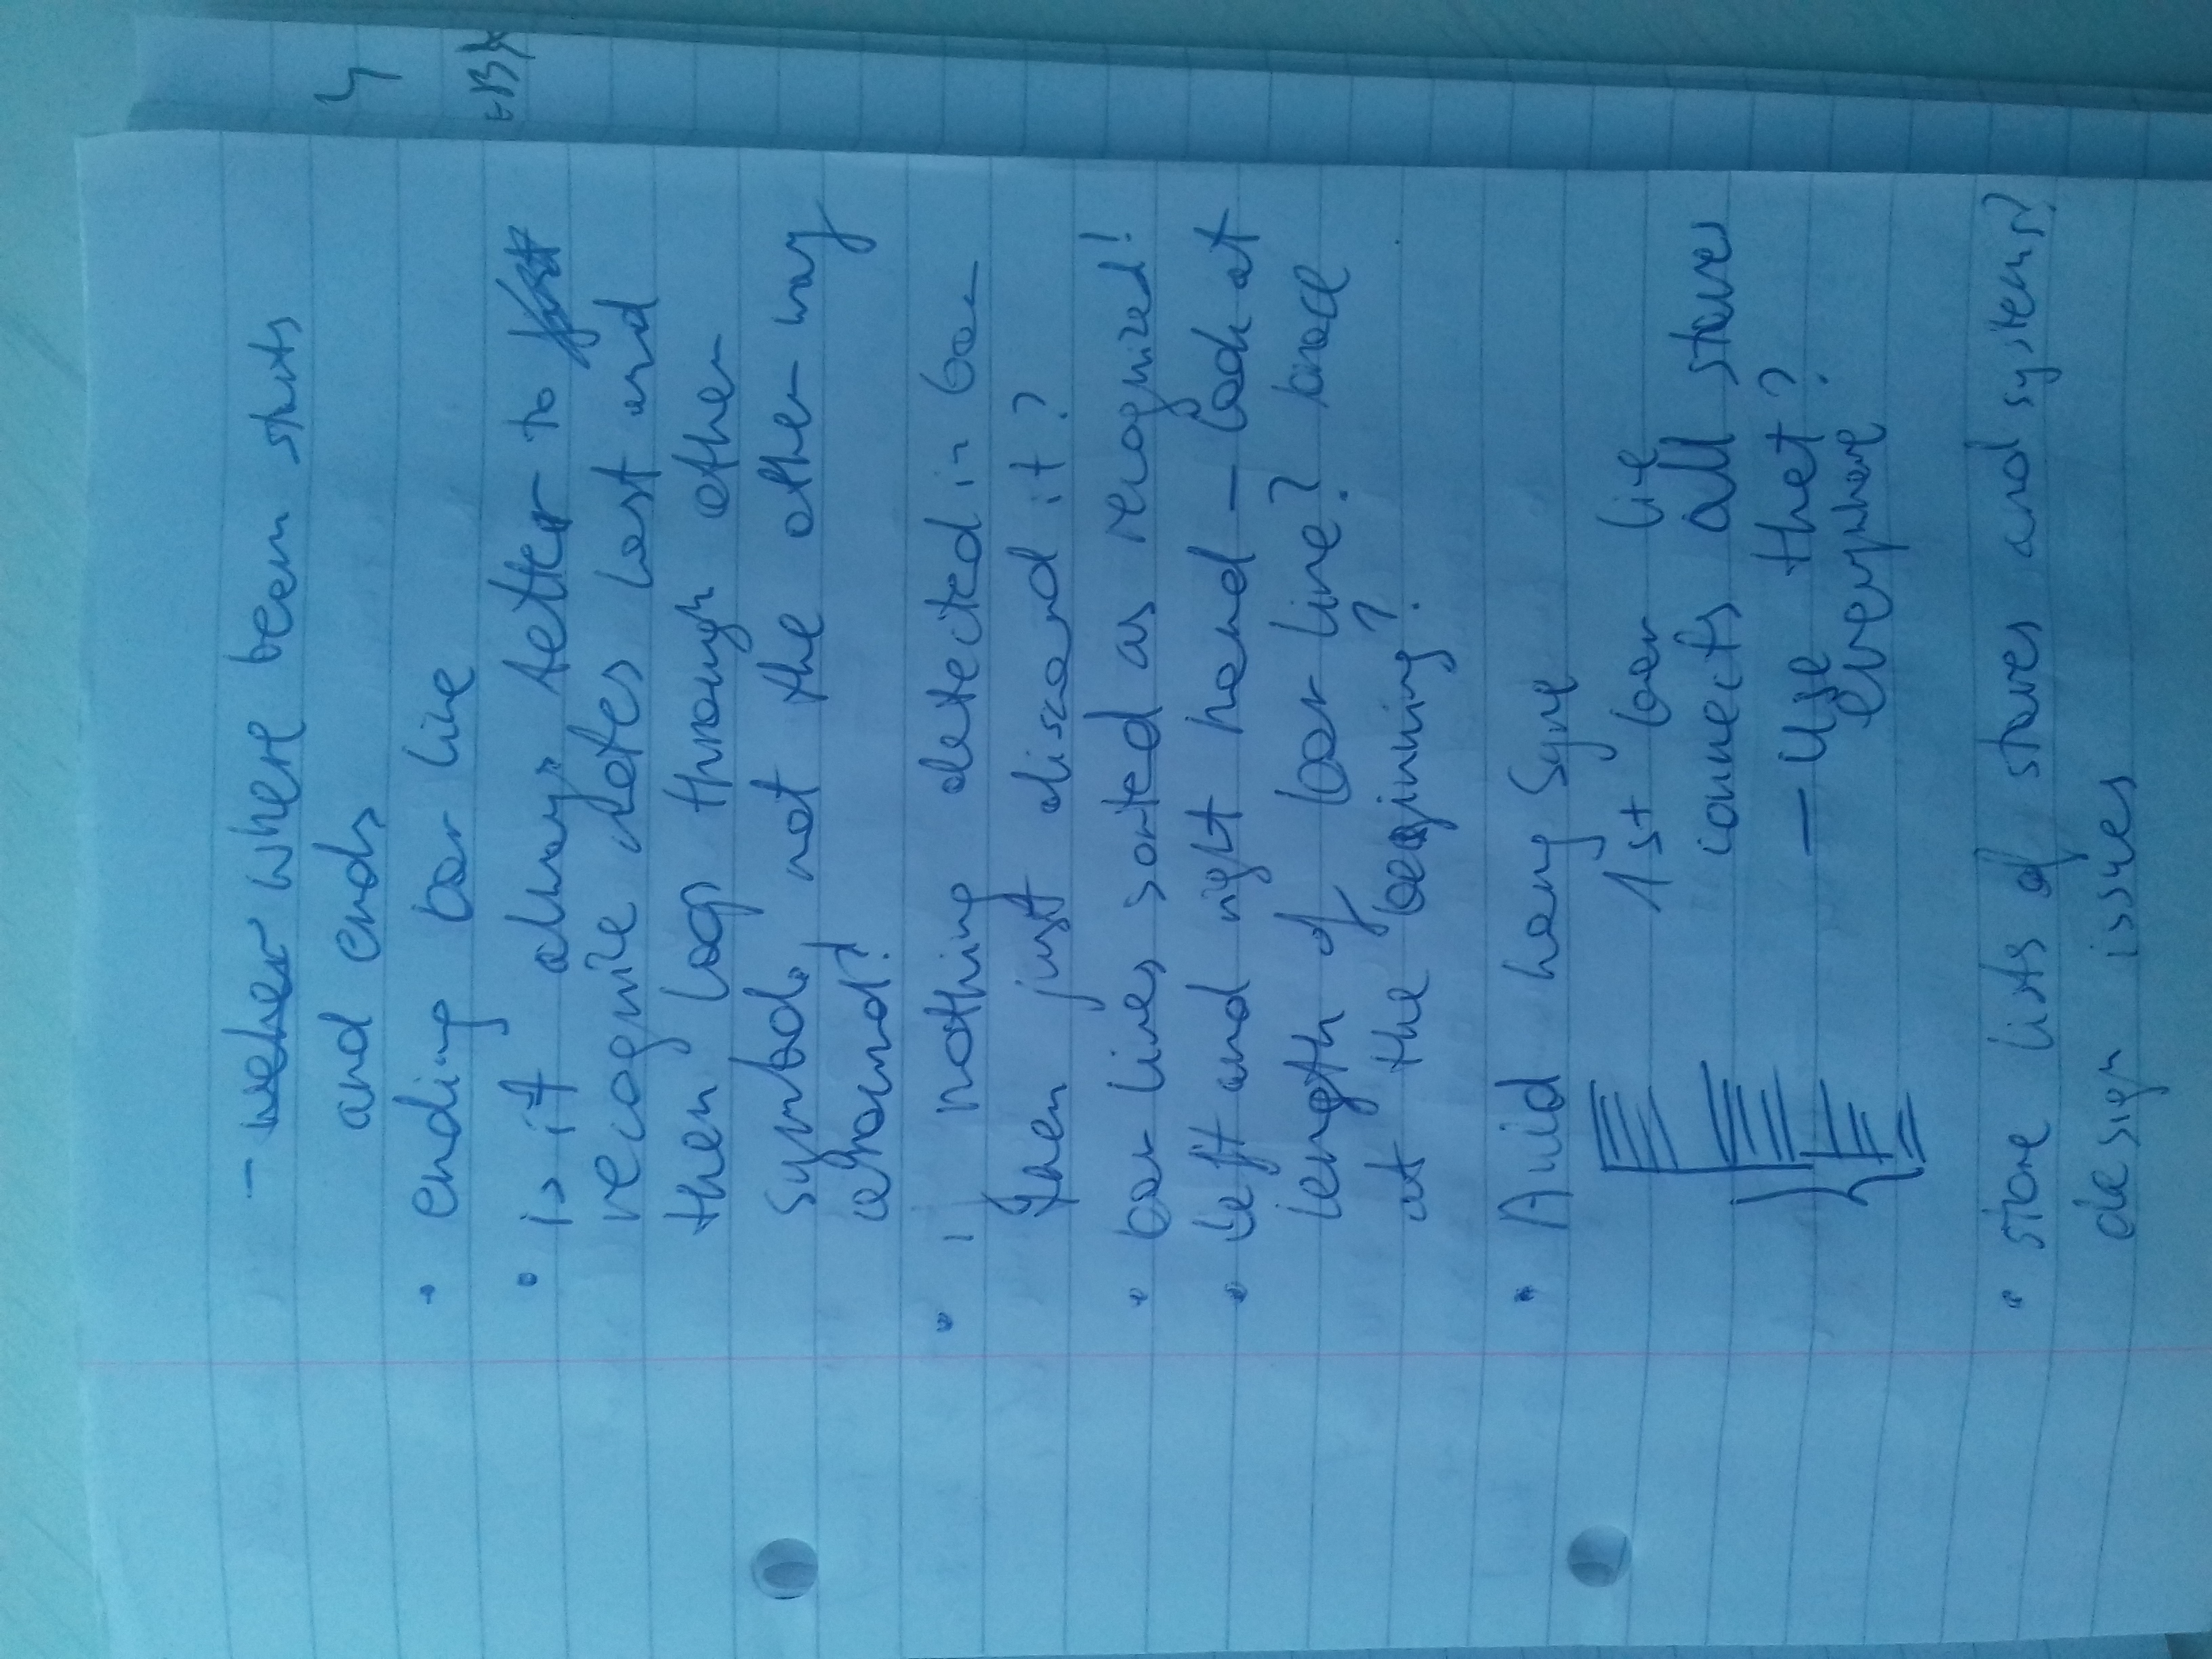 - weher where beam starts
and ends
• ending bar line
• is it always better to just
recognize notes last and
then loop through other
symbols, not the other way
around?
• if nothing detected in bar
then just discard it?
• bar lines sorted as recognized!
• left and right hand – look at
length of bar line? brace
at the beginning?
• Auld Lang Syne
1st bar line
connects all staves
– use that?
everywhere
• store lists of staves and systems?
design issues